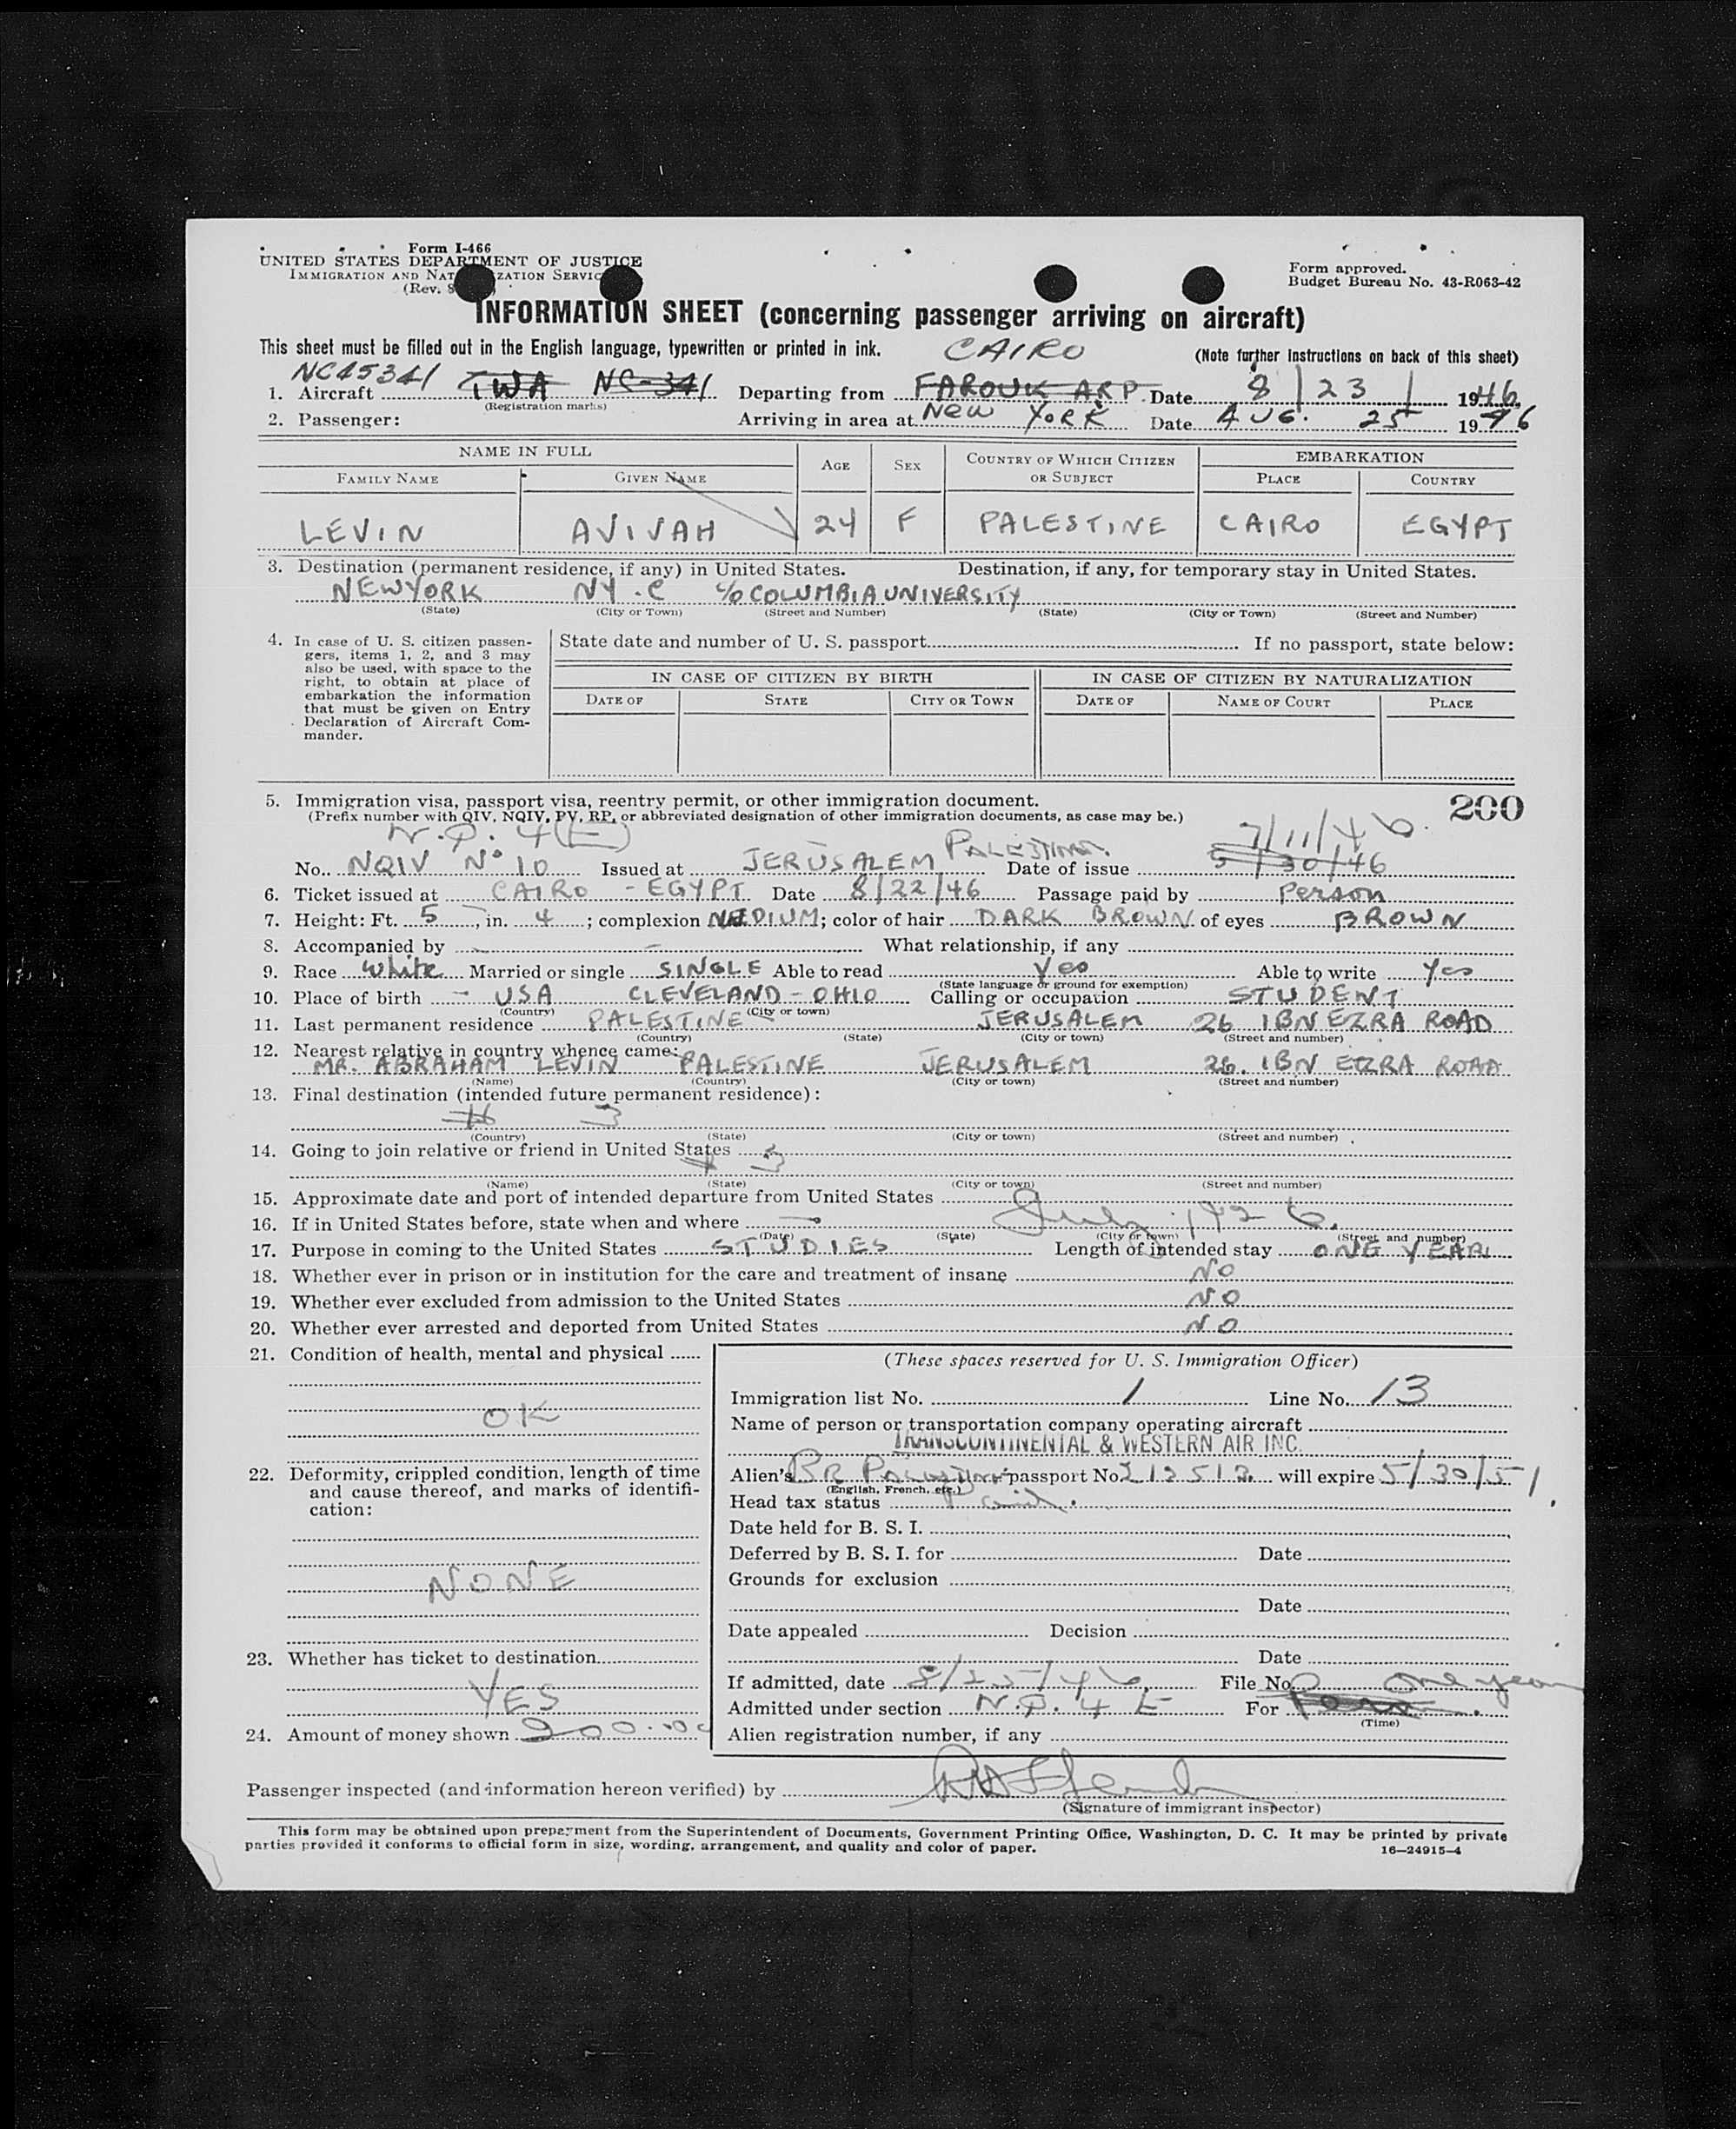 Form I-466
UNITED STATES DEPARTMENT OF JUSTICE
IMMIGRATION AND NAT ZATION SERVIC
(Rev.
Form approved.
Budget Bureau No. 43-R063-42
INFORMATION SHEET (concerning passenger arriving on aircraft)
This sheet must be filled out in the English language, typewritten or printed in ink. CAIRO (Note further instructions on back of this sheet)
NC45341
1. Aircraft TWA NC-341 Departing from FAROUK ARP. Date 8/23/ 1946
(Registration marks)
2. Passenger: Arriving in area at New YORK Date AUG. 25 1946
NAME IN FULL AGE SEX COUNTRY OF WHICH CITIZEN OR SUBJECT EMBARKATION
FAMILY NAME GIVEN NAME PLACE COUNTRY
LEVIN AVIVAH 24 F PALESTINE CAIRO EGYPT
3. Destination (permanent residence, if any) in United States. Destination, if any, for temporary stay in United States.
NEWYORK NY.C c/o COLUMBIA UNIVERSITY
(State) (City or Town) (Street and Number) (State) (City or Town) (Street and Number)
4. In case of U. S. citizen passen-
gers, items 1, 2, and 3 may
also be used, with space to the
right, to obtain at place of
embarkation the information
that must be given on Entry
Declaration of Aircraft Com-
mander.
State date and number of U. S. passport If no passport, state below:
IN CASE OF CITIZEN BY BIRTH IN CASE OF CITIZEN BY NATURALIZATION
DATE OF STATE CITY OR TOWN DATE OF NAME OF COURT PLACE
5. Immigration visa, passport visa, reentry permit, or other immigration document. 200
(Prefix number with QIV, NQIV, PV, RP, or abbreviated designation of other immigration documents, as case may be.)
4(E) PALESTINE 7/11/46.
No. NQIV No 10 Issued at JERUSALEM Date of issue 5/30/46
6. Ticket issued at CAIRO - EGYPT Date 8/22/46 Passage paid by Person
7. Height: Ft. 5, in. 4; complexion MEDIUM; color of hair DARK BROWN of eyes BROWN
8. Accompanied by — — What relationship, if any
9. Race White Married or single SINGLE Able to read Yes Able to write Yes
(State language or ground for exemption)
10. Place of birth - USA CLEVELAND - OHIO Calling or occupation STUDENT
(Country) (City or town)
11. Last permanent residence PALESTINE JERUSALEM 26 IBN EZRA ROAD
(Country) (State) (City or town) (Street and number)
12. Nearest relative in country whence came:
MR. ABRAHAM LEVIN PALESTINE JERUSALEM 26. IBN EZRA ROAD
(Name) (Country) (City or town) (Street and number)
13. Final destination (intended future permanent residence):
# 3
(Country) (State) (City or town) (Street and number)
14. Going to join relative or friend in United States
# 3
(Name) (State) (City or town) (Street and number)
15. Approximate date and port of intended departure from United States
16. If in United States before, state when and where — July 1926.
(Date) (State) (City or town) (Street and number)
17. Purpose in coming to the United States STUDIES Length of intended stay ONE YEAR
18. Whether ever in prison or in institution for the care and treatment of insane NO
19. Whether ever excluded from admission to the United States NO
20. Whether ever arrested and deported from United States NO
21. Condition of health, mental and physical
OK
22. Deformity, crippled condition, length of time
and cause thereof, and marks of identifi-
cation:
NONE
23. Whether has ticket to destination
YES
24. Amount of money shown 200.00
(These spaces reserved for U. S. Immigration Officer)
Immigration list No. 1 Line No. 13
Name of person or transportation company operating aircraft
TRANSCONTINENTAL & WESTERN AIR INC.
Alien's BR PALESTINE passport No. 212513 will expire 5/30/51.
(English, French, etc.)
Head tax status Paid.
Date held for B. S. I.
Deferred by B. S. I. for Date
Grounds for exclusion
Date
Date appealed Decision
Date
If admitted, date 8/25/46 File No. One year
Admitted under section 4 E For
(Time)
Alien registration number, if any
Passenger inspected (and information hereon verified) by
(Signature of immigrant inspector)
This form may be obtained upon prepayment from the Superintendent of Documents, Government Printing Office, Washington, D. C. It may be printed by private
parties provided it conforms to official form in size, wording, arrangement, and quality and color of paper. 16—24915-4